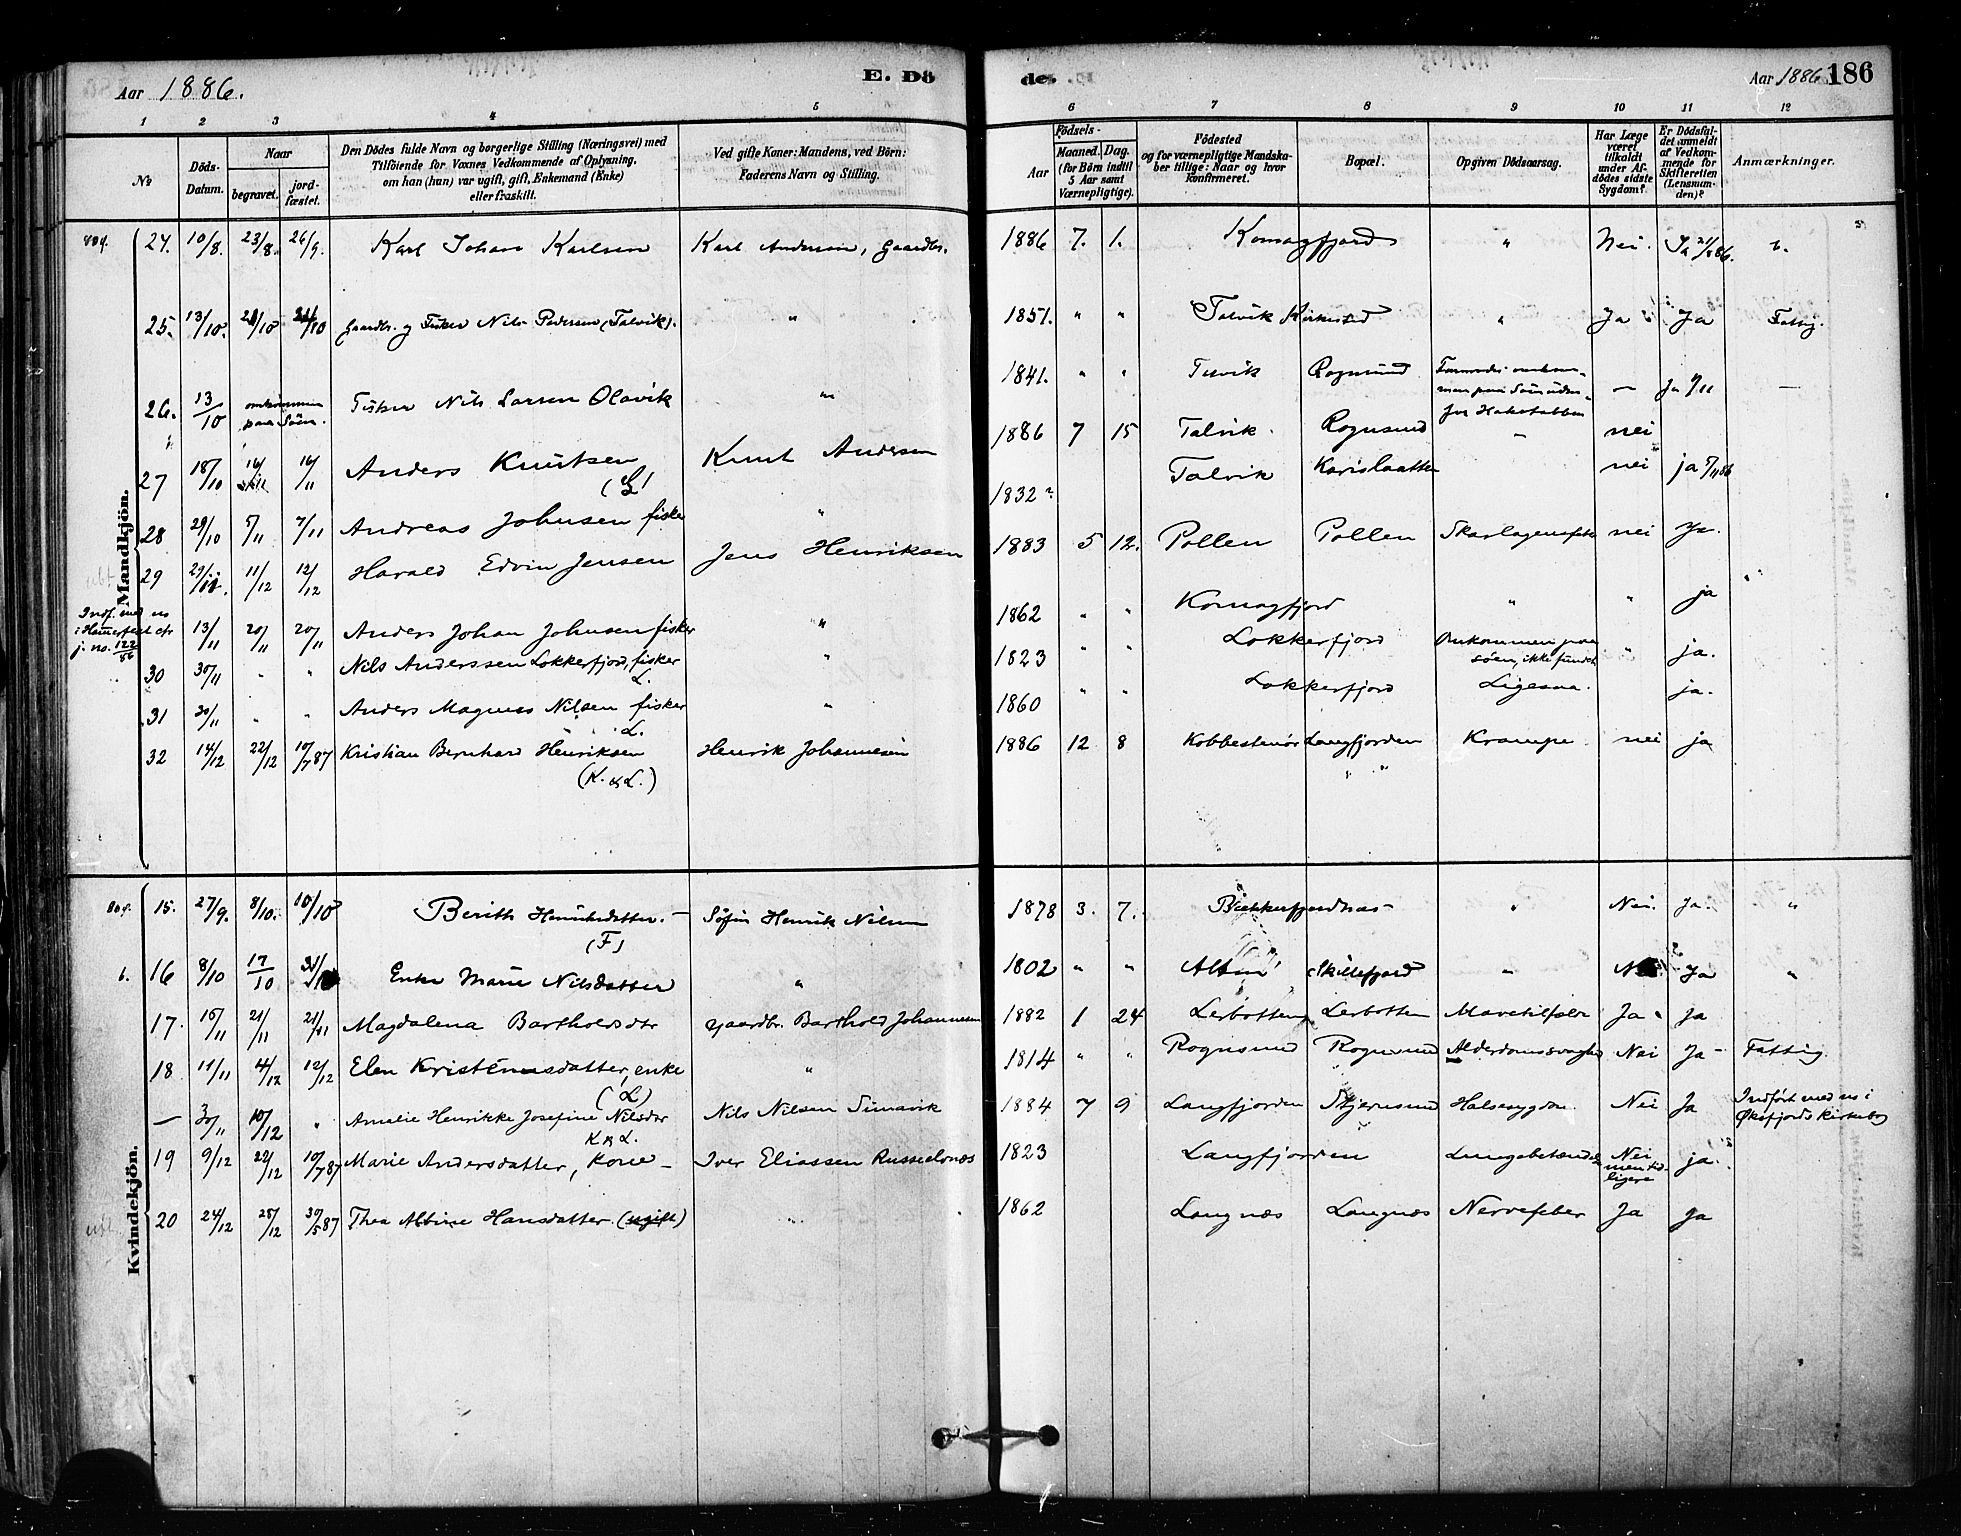 Aar 1886. E. Dö
de. Aar 1886 186
1 2 3 4 5 6 7 8 9 10 11 12
№
Döds-Datum.
Naar
begravet.
jord-fæstet.
Den Dödes fulde Navn og borgerlige Stilling (Næringsvei) med
Tilföiende for Voxnes Vedkommende af Oplysning,
om han (hun) var ugift, gift, Enkemand (Enke)
eller fraskilt.
Ved gifte Koner: Mandens, ved Börn:
Faderens Navn og Stilling.
Födsels-
Aar
Maaned. Dag.
(for Börn indtil
5 Aar samt
Værnepligtige).
Födested
og for værnepligtige Mandska-
ber tillige: Naar og hvor
konfirmeret.
Bopæl.
Opgiven Dödsaarsag.
Har Læge
været
tilkaldt
under Af-
dödes sidste
Sygdom?
Er Dödsfal-
det anmeldt
af Vedkom-
mende for
Skifteretten
(Lensman-
den)?
Anmærkninger.
Mandkjön.
24. 10/8. 23/8. 26/9. Karl Johan Karlsen Karl Andersen, Gaardbr. 1886 7. 1. Komagfjord " Nei. Ja
25. 13/10. Gaardbr. og Fisker Nils Pedersen (Talvik). " 1851. " " Talvik Kirkested " Ja Ja Fattig.
26. 13/10 omkommen paa Söen. Fisker Nils Larsen Olavik " 1841. " " Rognsund — Ja —
27 18/10 14/11 Anders Knutsen (L) Knut Andersen 1886 7 15 Talvik. Rognsund — nei
28 29/10 5/11 7/11 Andreas Johnsen fisker " 1832? Talvik nei ja
29 11/12 12/12 Harald Edvin Jensen Jens Henriksen 1883 5 12. Pollen Pollen nei Ja.
Indf. med no
j. no. 122/86
13/11 20/11 20/11 Anders Johan Johnsen fisker " 1862 " " Komagfjord " " ja
30 30/11 " " Nils Anderssen Lokkerfjord, fisker L. " 1823 " " Lokkerfjord Omkommen paa söen, ikke fundet " ja.
31 30/11 " " Anders Magnus Nilsen fisker L. " 1860 " " Lokkerfjord Ligesaa. ja.
32 14/12 22/12 10/7 87 Kristian Bernhard Henriksen (K. og L.) Henrik Johannesen 1886 12 8 Langfjorden Krampe nei ja
Kvindekjön.
15. 27/9. 8/10. 10/10 Berith Henriksdatter. — (F) Henrik Nilsen 1878 3. 7. " Nei. Ja. "
16 8/10 17/10 Enke Marie Nilsdatter " 1802 " " Alten Skillefjord " Ja "
17. 15/11 21/11 21/11 Magdalena Bartholdsdtr gaardbr. Barthold Johannesen 1882 1 24 Lerbotten Lerbotten Ja Ja
18 11/11 4/12 12/12 Elen Kristensdatter, enke (L) " 1814 " " Rognsund Rognsund Alderdomssvaghed Nei Ja — Fattig.
— 3/11 10/12 " Amalie Henrikke Josefine Nilsdtr K og L. Nils Nilsen Simavik 1884 7 9 Langfjorden Stjernsund Halsesygdom Nei Ja Indfört med no i Øksfjords Kirkebog
19 9/12 22/12 10/7 87 Marie Andersdatter, Kone — Iver Eliassen Russelvnæs 1823 Langfjorden Lungebetændelse Nei men tidligere ja.
20 24/12 28/12 30/5 87 Thea Albine Hansdatter (ugift) " 1862 Langnæs Langnæs Nervefeber Ja Ja